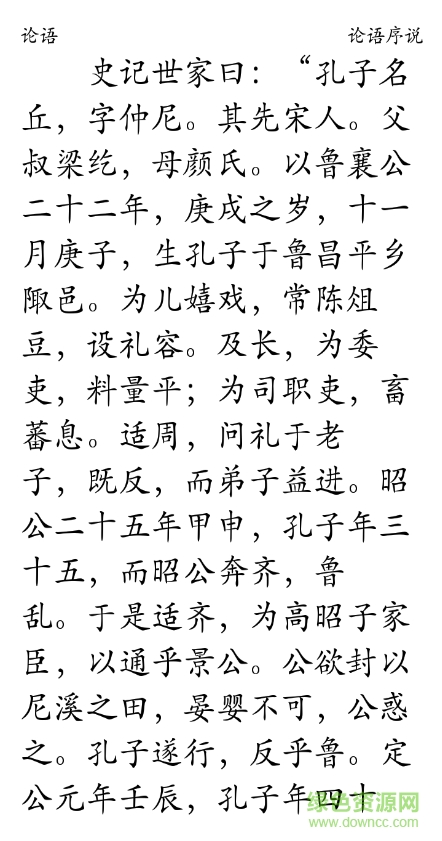 论语 论语序说
史记世家曰：“孔子名
丘，字仲尼。其先宋人。父
叔梁纥，母颜氏。以鲁襄公
二十二年，庚戌之岁，十一
月庚子，生孔子于鲁昌平乡
陬邑。为儿嬉戏，常陈俎
豆，设礼容。及长，为委
吏，料量平；为司职吏，畜
蕃息。适周，问礼于老
子，既反，而弟子益进。昭
公二十五年甲申，孔子年三
十五，而昭公奔齐，鲁
乱。于是适齐，为高昭子家
臣，以通乎景公。公欲封以
尼溪之田，晏婴不可，公惑
之。孔子遂行，反乎鲁。定
公元年壬辰，孔子年四十
绿色资源网
www.downcc.com